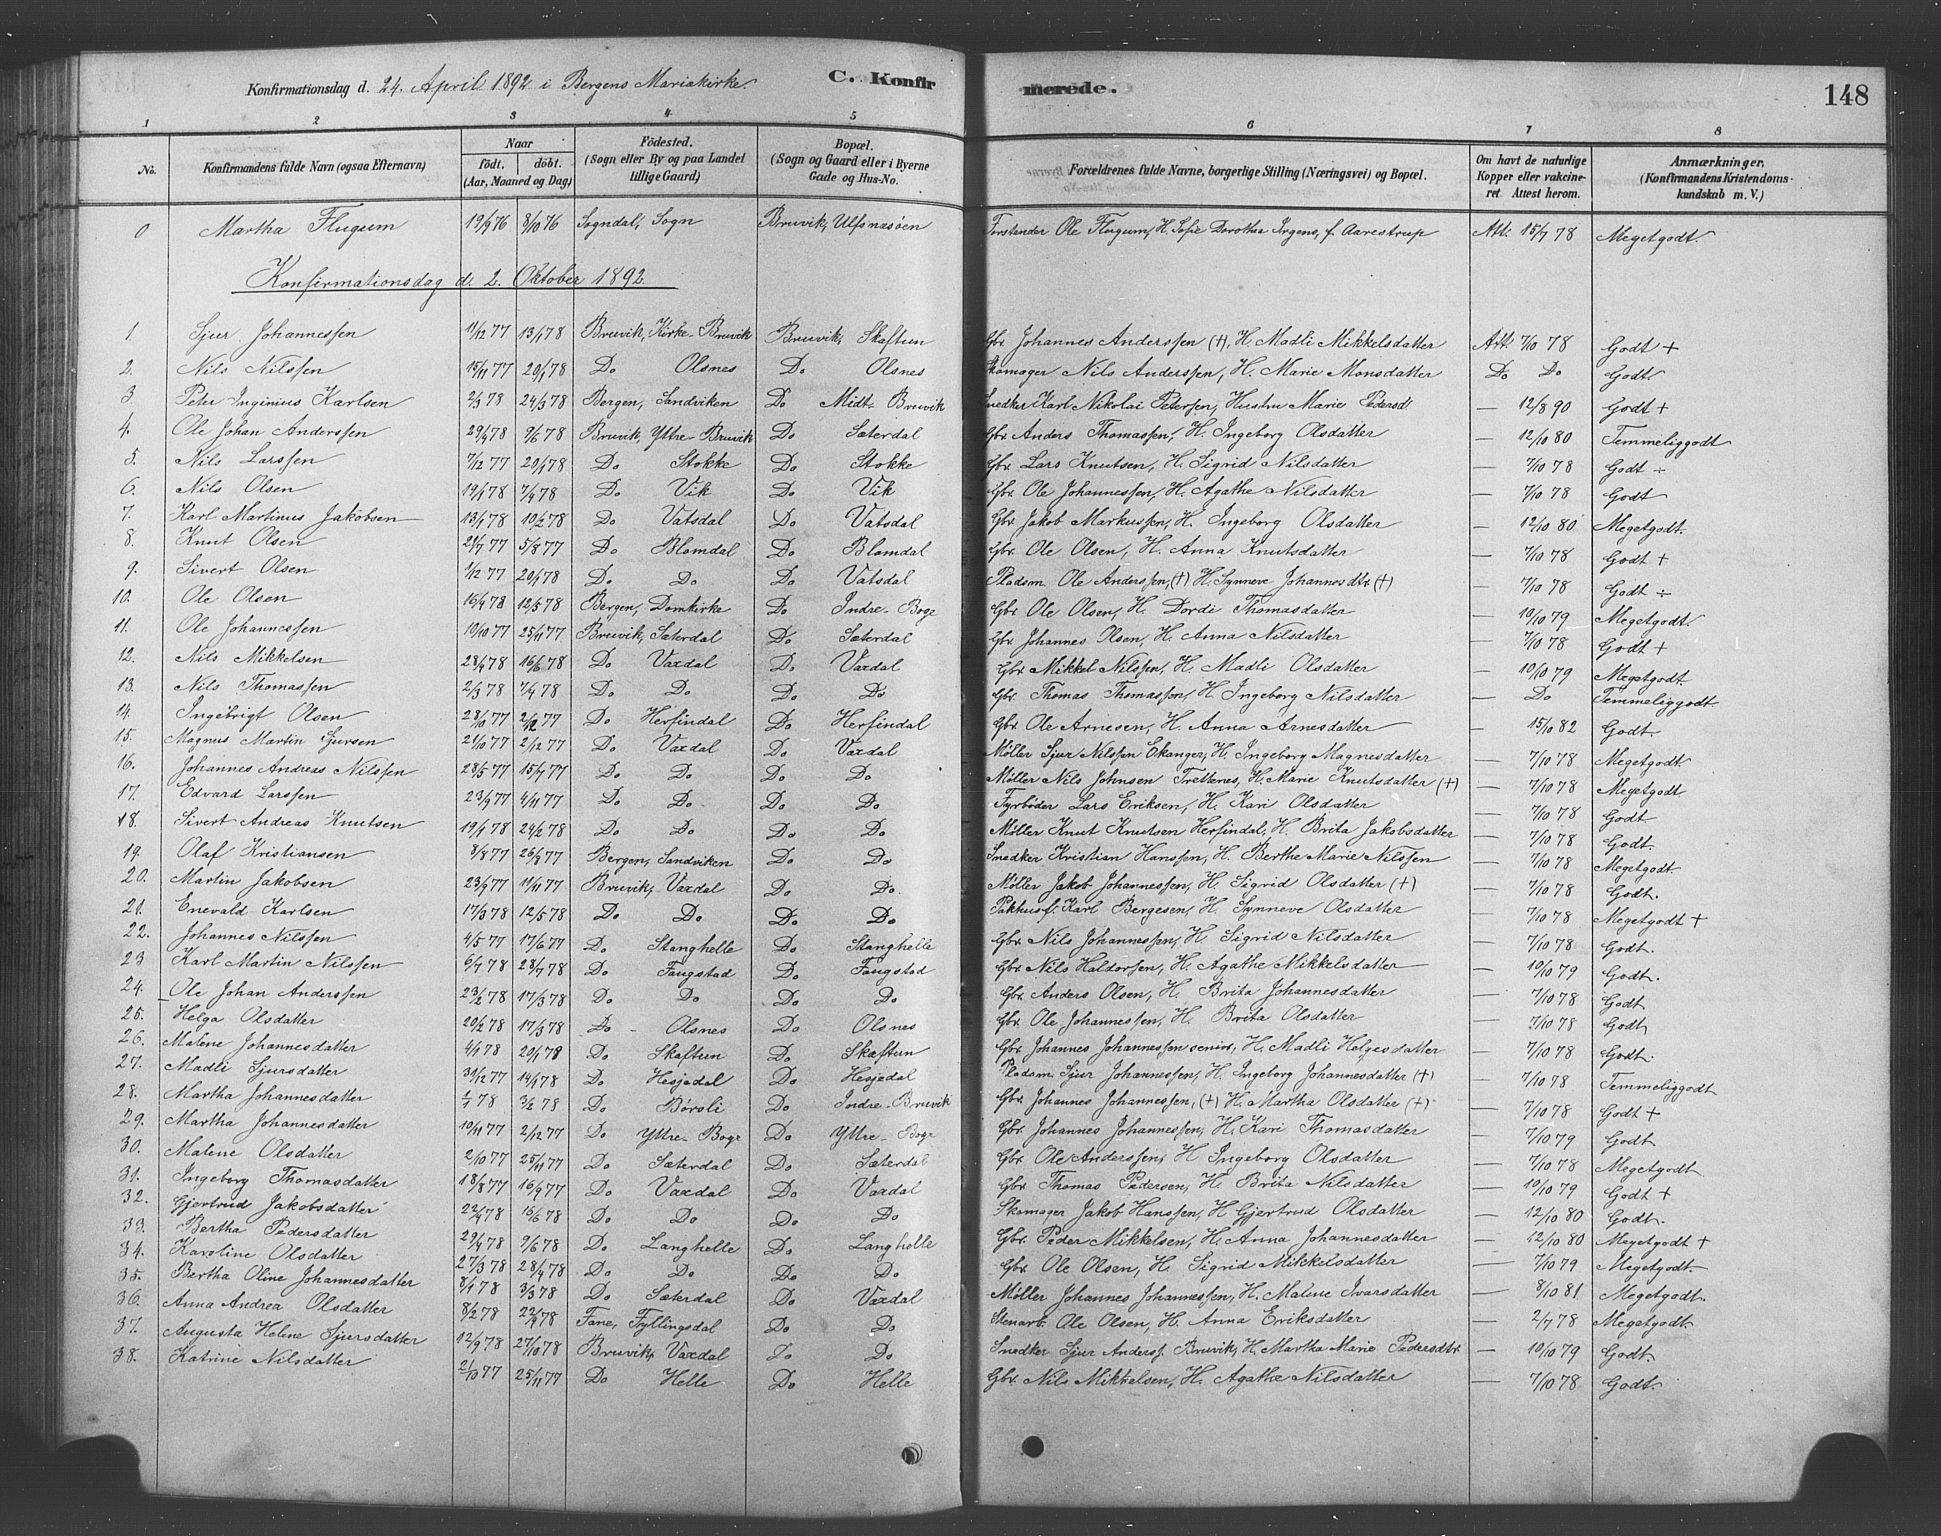 Konfirmationsdag d. 24. April 1892 i Bergens Mariakirke. C. Konfirmerede. 148
1 2 3 4 5 6 7 8
No. Konfirmandens fulde Navn (ogsaa Efternavn) Naar födt. döbt. (Aar, Maaned og Dag) Födested. (Sogn eller By og paa Landet tillige Gaard) Bopæl. (Sogn og Gaard eller i Byerne Gade og Hus-No. Forældrenes fulde Navne, borgerlige Stilling (Næringsvei) og Bopæl. Om havt de naturlige Kopper eller vakcineret. Attest herom. Anmærkninger. (Konfirmandens Kristendomskundskab m. V.)
0 Martha Flugum 19/9 76 8/10 76 Sogndal, Sogn Bruvik, Ulfsnæsöen Forstander Ole Flugum, H. Sofie Dorothea Irgens, f. Aarestrup Att. 15/7 78 Megetgodt.
Konfirmationsdag d. 2. Oktober 1892.
1. Sjur Johannessen 11/12 77 13/1 78 Bruvik, Kirke-Bruvik Bruvik, Skaftun Gbr. Johannes Anderssen (+), H. Madli Mikkelsdatter Att. 7/10 78 Godt +
2. Nils Nilssen 15/11 77 20/1 78 Do Olsnes Do Olsnes Skomager Nils Anderssen, H. Marie Monsdatter Do Do Godt
3. Peter Inginius Karlsen 2/3 78 24/3 78 Bergen, Sandviken Do Midt-Bruvik Snedker Karl Nikolai Petersen, Hustru Marie Pedersd — 12/8 90 Godt +
4. Ole Johan Anderssen 29/4 78 9/6 78 Bruvik, Yttre-Bruvik Do Sæterdal Gbr. Anders Thomassen, H. Ingeborg Olsdatter — 12/10 80 Temmeliggodt
5. Nils Larssen 7/12 77 20/1 78 Do Stokke Do Stokke Gbr. Lars Knutsen, H. Sigrid Nilsdatter — 7/10 78 Godt ÷
6. Nils Olsen 19/1 78 7/4 78 Do Vik Do Vik Gbr. Ole Johannessen, H. Agathe Nilsdatter — 7/10 78 Godt
7. Karl Martinus Jakobsen 13/1 78 10/2 78 Do Vatsdal Do Vatsdal Gbr. Jakob Markussen, H. Ingeborg Olsdatter — 12/10 80 Megetgodt.
8. Knut Olsen 21/7 77 5/8 77 Do Blomdal Do Blomdal Gbr. Ole Olsen, H. Anna Knutsdatter — 7/10 78 Godt +
9. Sivert Olsen 1/12 77 20/1 78 Do Do Do Vatsdal Pladsm Ole Anderssen, (+) H. Synneve Johannesdtr (+) — 7/10 78 Godt ÷
10. Ole Olsen 16/4 78 12/5 78 Bergen, Domkirke Do Indre-Boge Gbr. Ole Olsen, H. Dordi Thomasdatter — 10/10 79 Megetgodt.
11. Ole Johannessen 10/10 77 25/11 77 Bruvik, Sæterdal Do Sæterdal Gbr. Johannes Olsen, H. Anna Nilsdatter — 7/10 78 Godt +
12. Nils Mikkelsen 28/4 78 16/6 78 Do Vaxdal Do Vaxdal Gbr. Mikkel Nilssen, H. Madli Olsdatter — 10/10 79 Megetgodt.
13. Nils Thomassen 2/3 78 7/4 78 Do Do Do Do Gbr. Thomas Thomassen, H. Ingeborg Nilsdatter — Do Temmeliggodt
14. Ingebrigt Olsen 28/10 77 2/12 77 Do Herfindal Do Herfindal Gbr. Ole Arnesen, H. Anna Arnesdatter — 15/10 82 Godt.
15. Magnus Martin Sjursen 21/10 77 2/12 77 Do Vaxdal Do Vaxdal Møller Sjur Nilssen Ekanger, H. Ingeborg Magnesdatter — 7/10 78 Megetgodt.
16. Johannes Andreas Nilssen 28/5 77 15/7 77 Do Do Do Do Møller Nils Johnsen Trettenes, H. Marie Knutsdatter (+) — 7/10 78 Megetgodt
17. Edvard Larssen 23/9 77 4/11 77 Do Do Do Do Fyrbøder Lars Eriksen, H. Kari Olsdatter — 7/10 78 Godt
18. Sivert Andreas Knutsen 19/1 78 24/2 78 Do Do Do Do Møller Knut Knutsen Herfindal, H. Brita Jakobsdatter — 7/10 78 Godt.
19. Olaf Kristiansen 8/8 77 26/9 77 Bergen, Sandviken Do Do Snedker Kristian Hanssen, H. Berthe Marie Nilssen — 7/10 78 Megetgodt
20. Martin Jakobsen 23/9 77 11/11 77 Bruvik, Vaxdal Do Do Møller Jakob Johannessen, H. Sigrid Olsdatter (+) — 7/10 78 Godt.
21. Enevald Karlsen 17/3 78 12/5 78 Do Do Do Do Pakhusf. Karl Bergesen, H. Synneve Olsdatter — 7/10 78 Megetgodt +
22. Johannes Nilssen 4/5 77 17/6 77 Do Stanghelle Do Stanghelle Gbr. Nils Johannessen, H. Sigrid Nilsdatter — 7/10 78 Godt.
23 Karl Martin Nilssen 6/7 78 28/7 78 Do Faugstad Do Faugstad Gbr. Nils Haldorsen, H. Agathe Mikkelsdatter — 10/10 79 Godt.
24. Ole Johan Anderssen 23/2 78 17/3 78 Do Do Do Do Gbr. Anders Olsen, H. Brita Johannesdatter — 7/10 78 Godt
25. Helga Olsdatter 20/2 78 17/3 78 Do Olsnes Do Olsnes Gbr. Ole Johannessen, H. Brita Olsdatter — 7/10 78 Godt
26. Malene Johannesdatter 4/1 78 20/1 78 Do Skaftun Do Skaftun Gbr. Johannes Johannessen senior, H. Madli Helgesdatter — 7/10 78 Godt.
27. Madli Sjursdatter 31/12 77 14/1 78 Do Hesjedal Do Hesjedal Pladsm. Sjur Johannessen, H. Ingeborg Johannesdatter (+) — 7/10 78 Temmeliggodt
28. Martha Johannesdatter 1/1 78 3/2 78 Do Børsli Do Indre-Bruvik Gbr. Johannes Johannessen, (+) H. Martha Olsdatter (+) — 7/10 78 Godt +
29. Martha Johannesdatter 10/11 77 2/12 77 Do Yttre-Boge Do Yttre-Boge Gbr. Johannes Johannessen, H. Kari Thomasdatter — 7/10 79 Godt
30. Malene Olsdatter 2/10 77 25/11 77 Do Sæterdal Do Sæterdal Gbr. Ole Anderssen, H. Ingeborg Olsdatter — 7/10 78 Megetgodt
31. Ingeborg Thomasdatter 18/8 77 16/9 77 Do Vaxdal Do Vaxdal Gbr. Thomas Pedersen, H. Brita Nilsdatter — 10/10 79 Godt +
32. Gjertrud Jakobsdatter 22/4 78 16/6 78 Do Do Do Do Skomager Jakob Hanssen, H. Gjertrud Olsdatter — 12/10 80 Godt.
33. Bertha Pedersdatter 29/4 78 9/6 78 Do Langhelle Do Langhelle Gbr. Peder Mikkelsen, H. Anna Johannesdatter — 12/10 80 Megetgodt +
34. Karoline Olsdatter 27/3 78 28/4 78 Do Do Do Do Gbr. Ole Olsen, H. Sigrid Mikkelsdatter — 7/10 79 Megetgodt.
35. Bertha Oline Johannesdatter 8/1 78 3/3 78 Do Sæterdal Do Vaxdal Møller Johannes Johannessen, H. Malene Ivarsdatter — 8/10 81 Megetgodt.
36. Anna Andrea Olsdatter 8/2 78 22/4 78 Fane, Fyllingsdal Do Do Stenarb. Ole Olsen, H. Anna Eriksdatter — 2/7 78 Megetgodt.
37. Augusta Helene Sjursdatter 12/9 78 27/10 78 Bruvik, Vaxdal Do Do Snedker Sjur Anderss. Bruvik, H. Martha Marie Pedersdtr. — 10/10 79 Godt.
38. Katrine Nilsdatter 2/10 77 25/11 77 Do Helle Do Helle Gbr. Nils Mikkelsen, H. Agathe Nilsdatter — 7/10 78 Godt.